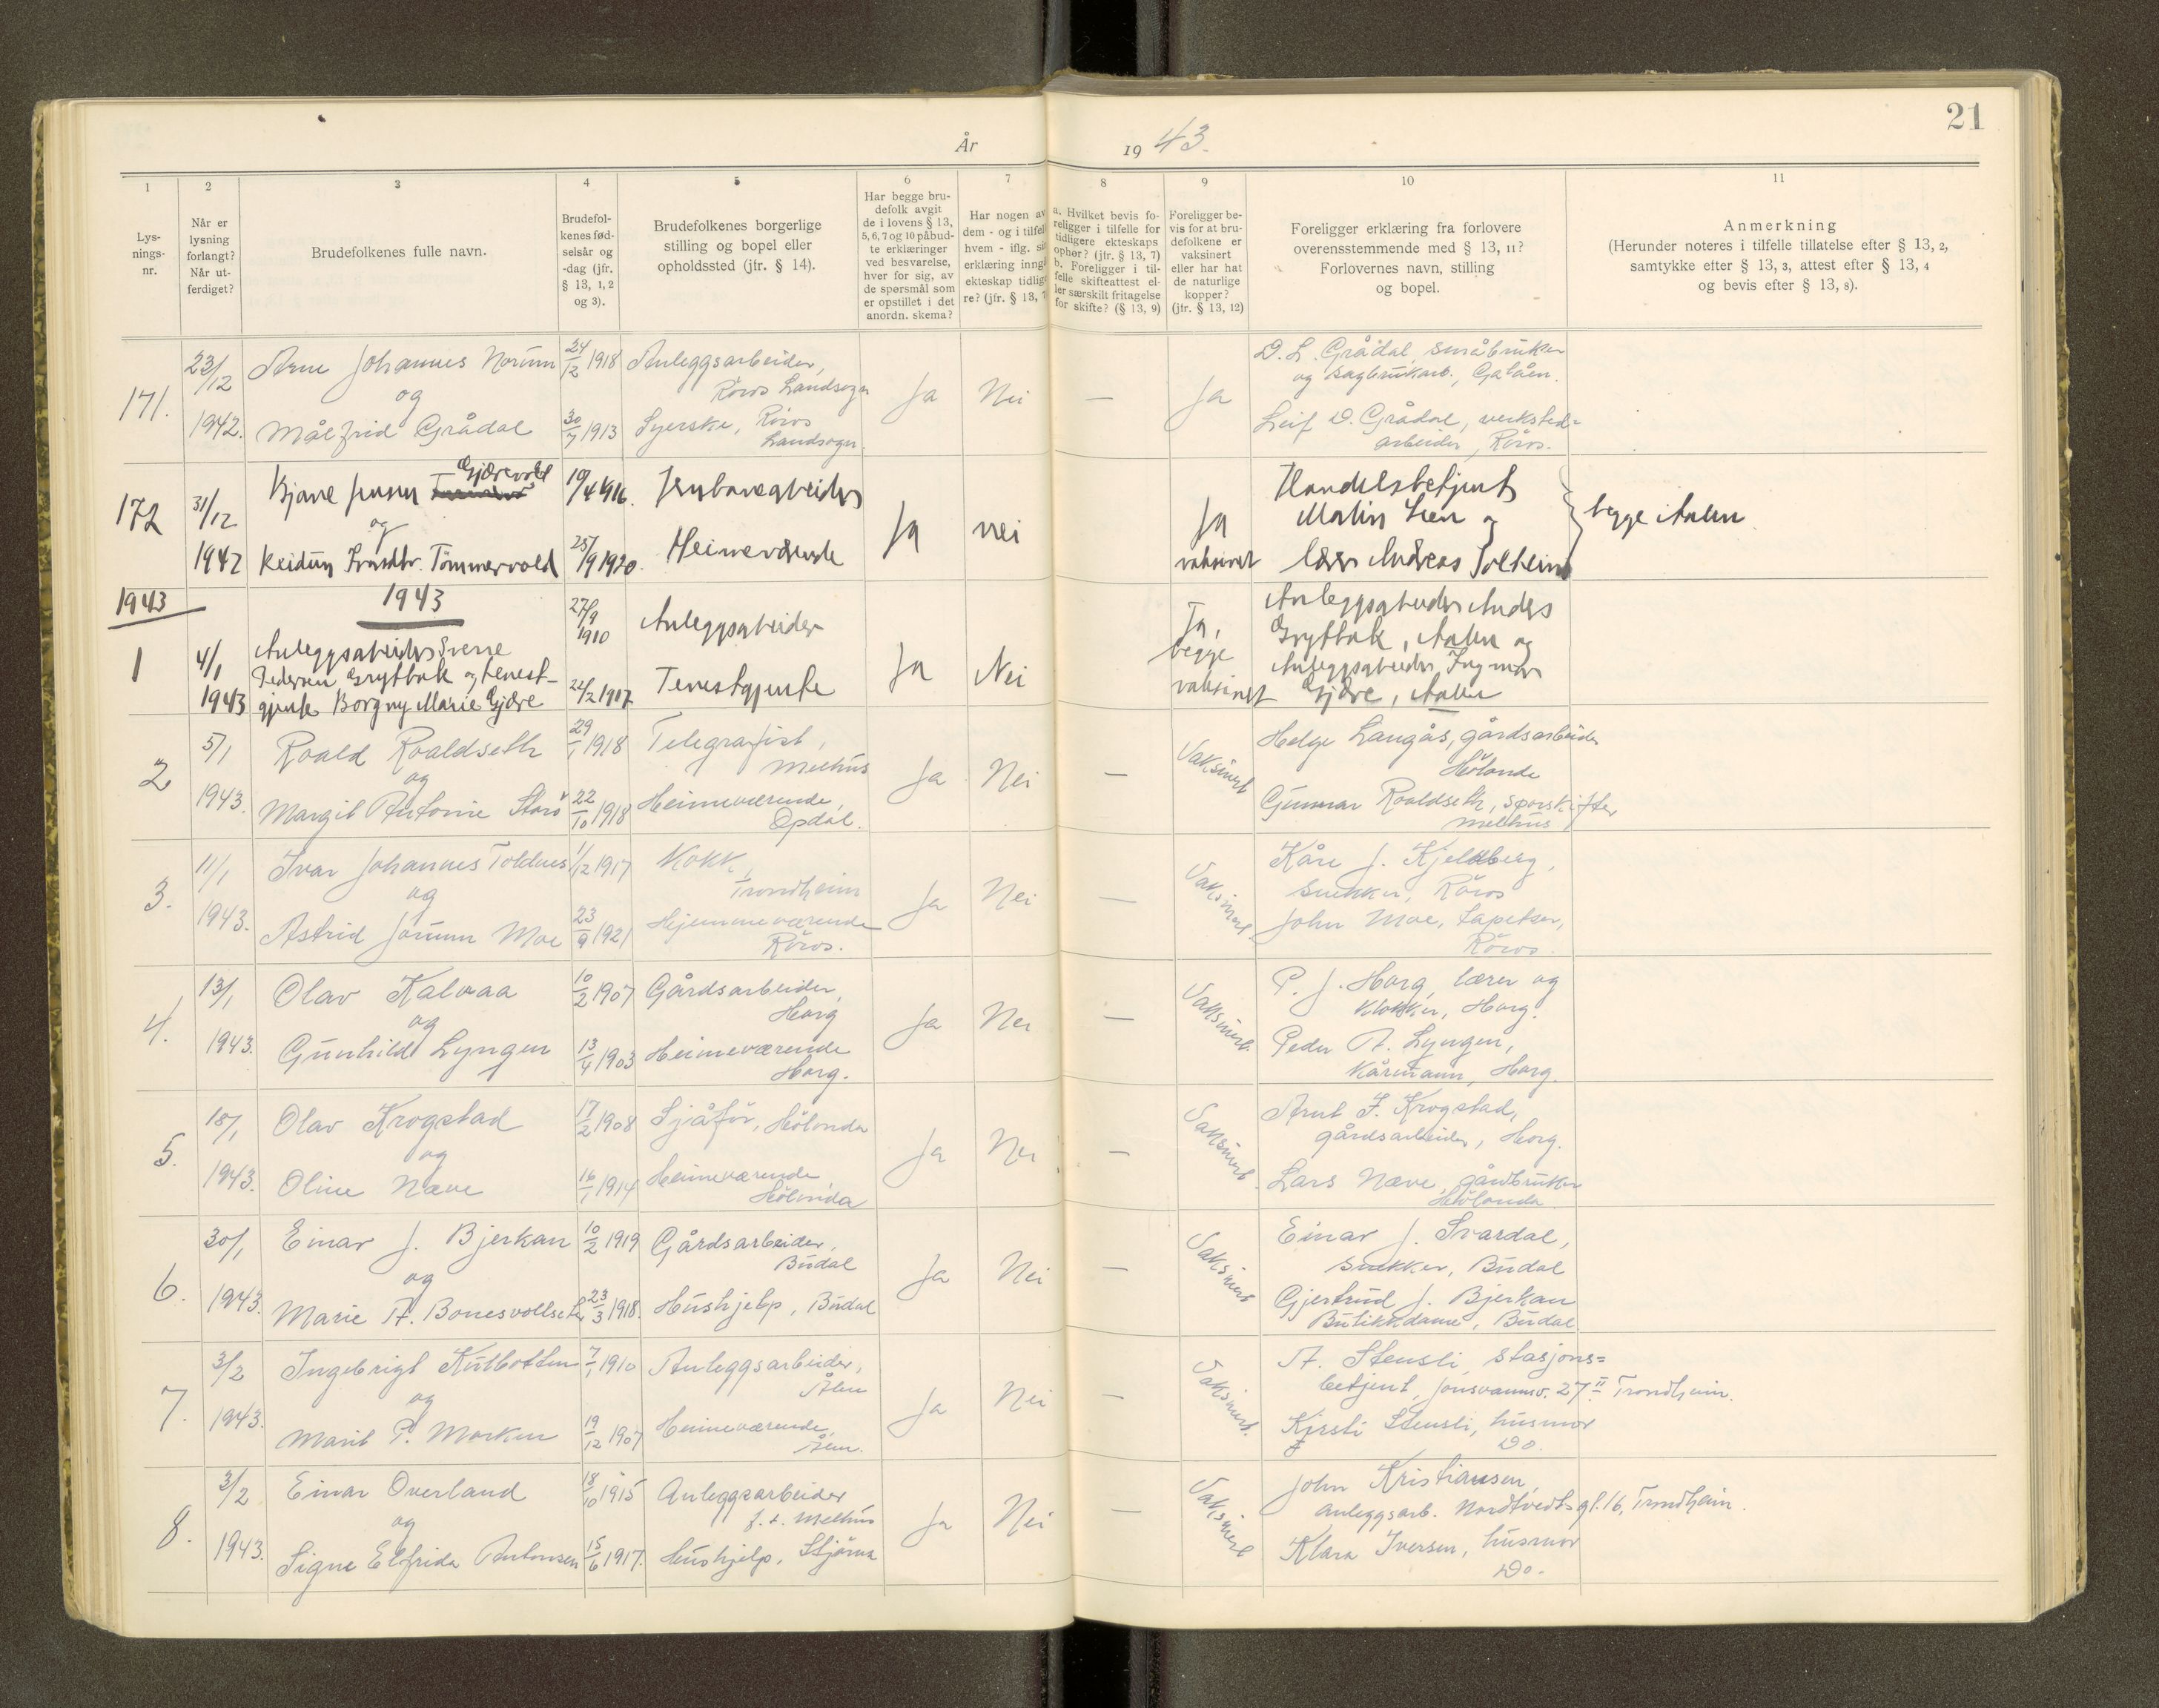 21
År 1943.
1
2
3
4
5
6
7
8
9
10
11
Lys-
nings-
nr.
Når er
lysning
forlangt?
Når ut-
ferdiget?
Brudefolkenes fulle navn.
Brudefol-
kenes fød-
selsår og
-dag (jfr.
§ 13, 1, 2
og 3).
Brudefolkenes borgerlige
stilling og bopel eller
opholdssted (jfr. § 14).
Har begge bru-
defolk avgit
de i lovens § 13,
5, 6, 7 og 10 påbud-
te erklæringer
ved besvarelse,
hver for sig, av
de spørsmål som
er opstillet i det
anordn. skema?
Har nogen av
dem - og i tilfelle
hvem - iflg. si
erklæring inngå
ekteskap tidlige
re? (jfr. § 13, 7
a. Hvilket bevis fo-
religger i tilfelle for
tidligere ekteskaps
ophør? (jfr. § 13, 7)
b. Foreligger i til-
felle skifteattest el-
ler særskilt fritagelse
for skifte? (§ 13, 9)
Foreligger be-
vis for at bru-
defolkene er
vaksinert
eller har hat
de naturlige
kopper?
(jfr. § 13, 12)
Foreligger erklæring fra forlovere
overensstemmende med § 13, 11?
Forlovernes navn, stilling
og bopel.
Anmerkning
(Herunder noteres i tilfelle tillatelse efter § 13, 2,
samtykke efter § 13, 3, attest efter § 13, 4
og bevis efter § 13, 8).
171.
23/12
1942.
Arne Johannes Norum
og
Målfrid Grådal
24/2 1918
30/7 1913
Anleggsarbeider,
Röros Landsogn
Syerske, Röros
Landsogn.
Ja
Nei
—
Ja
D. L. Grådal, småbruker
og sagbrukarb., Galåen.
Leif D. Grådal, verksted=
arbeider, Röros.
172
31/12
1942
Bjarne Jensen Gjærevold
og
Reidun Tømmervold
19/4 1916.
25/9 1920.
Jernbanearbeider
Heimeværende
Ja
nei
Ja
vaksinert
Handelsbetjent
Martin Lien og
Lars Andreas Solheim
begge i Aalen
1943
1943
1
4/1
1943
Anleggsarbeider Sverre
Pedersen Grytbak og tenest-
gjente Borgny Marie Gjære
27/9
1910
22/2 1917
Anleggsarbeider
Tenestgjente
Ja
Nei
Ja,
begge
vaksinert
Anleggsarbeider Anders
Grytbak, Aalen og
Anleggsarbeider Ingmar
Gjære, Aalen
2
5/1
1943.
Roald Roaldseth
og
Margit Antonie Storö
29/1 1918
22/10 1918
Telegrafist,
Melhus
Heimeværende,
Opdal.
Ja
Nei
—
Vaksinert
Helge Langås, gårdsarbeider
Hölonda
Gunnar Roaldseth, sporskifter
Melhus
3.
11/1
1943.
Ivar Johannes Toldnes
og
Astrid Jorunn Moe
1/2 1917
23/9 1921
Kokk,
Trondheim
Hjemmeværende
Röros.
Ja
Nei
—
Vaksinert
Kåre J. Kjellberg,
snekker, Röros
John Moe, tapetser,
Röros.
4.
13/1
1943.
Olav Kalvaa
og
Gunhild Lyngen
10/2 1907
13/4 1903
Gårdsarbeider,
Horg
Heimeværende
Horg.
Ja
Nei
—
Vaksinert.
P. J. Horg, lærer og
klokker, Horg.
Peder A. Lyngen,
kårmann, Horg.
5.
18/1
1943.
Olav Krogstad
og
Oline Næve
17/2 1908
16/1 1914
Sjåför, Hölonda
Heimeværende
Hölonda
Ja
Nei
—
Vaksinert.
Arnt F. Krogstad,
gårdsarbeider, Horg.
Lars Næve, gårdbruker
Hölonda
6.
30/1
1943.
Einar J. Bjerkan
og
Marie A. Bonesvollseter
10/2 1919
23/3 1918.
Gårdsarbeider,
Budal
Hushjelp, Budal
Ja
Nei
—
Vaksinert
Einar J. Svardal,
snekker, Budal
Gjertrud J. Bjerkan
Butikkdame, Budal
7.
3/2
1943.
Ingebrigt Kulbotten
og
Marit P. Morken
7/1 1910
19/12 1907
Anleggsarbeider,
Ålen
Heimeværende,
Ålen.
Ja
Nei
—
Vaksinert.
A. Stensli, stasjons=
betjent, Jonsvannsv. 27 II Trondheim.
Kirsti Stensli, husmor
Do.
8.
3/2
1943.
Einar Overland
og
Signe Elfrida Antonsen
18/10 1915
15/6 1917.
Anleggsarbeider
f. t. Melhus
Hushjelp, Stjörna
Ja
Nei
—
Vaksinert
John Kristiansen,
anleggsarb. Nordtvedts gt. 16, Trondheim.
Klara Iversen, husmor
Do.